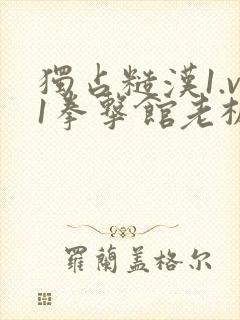 獨占糙漢1.v
1拳擊館老板
羅蘭盖格尔